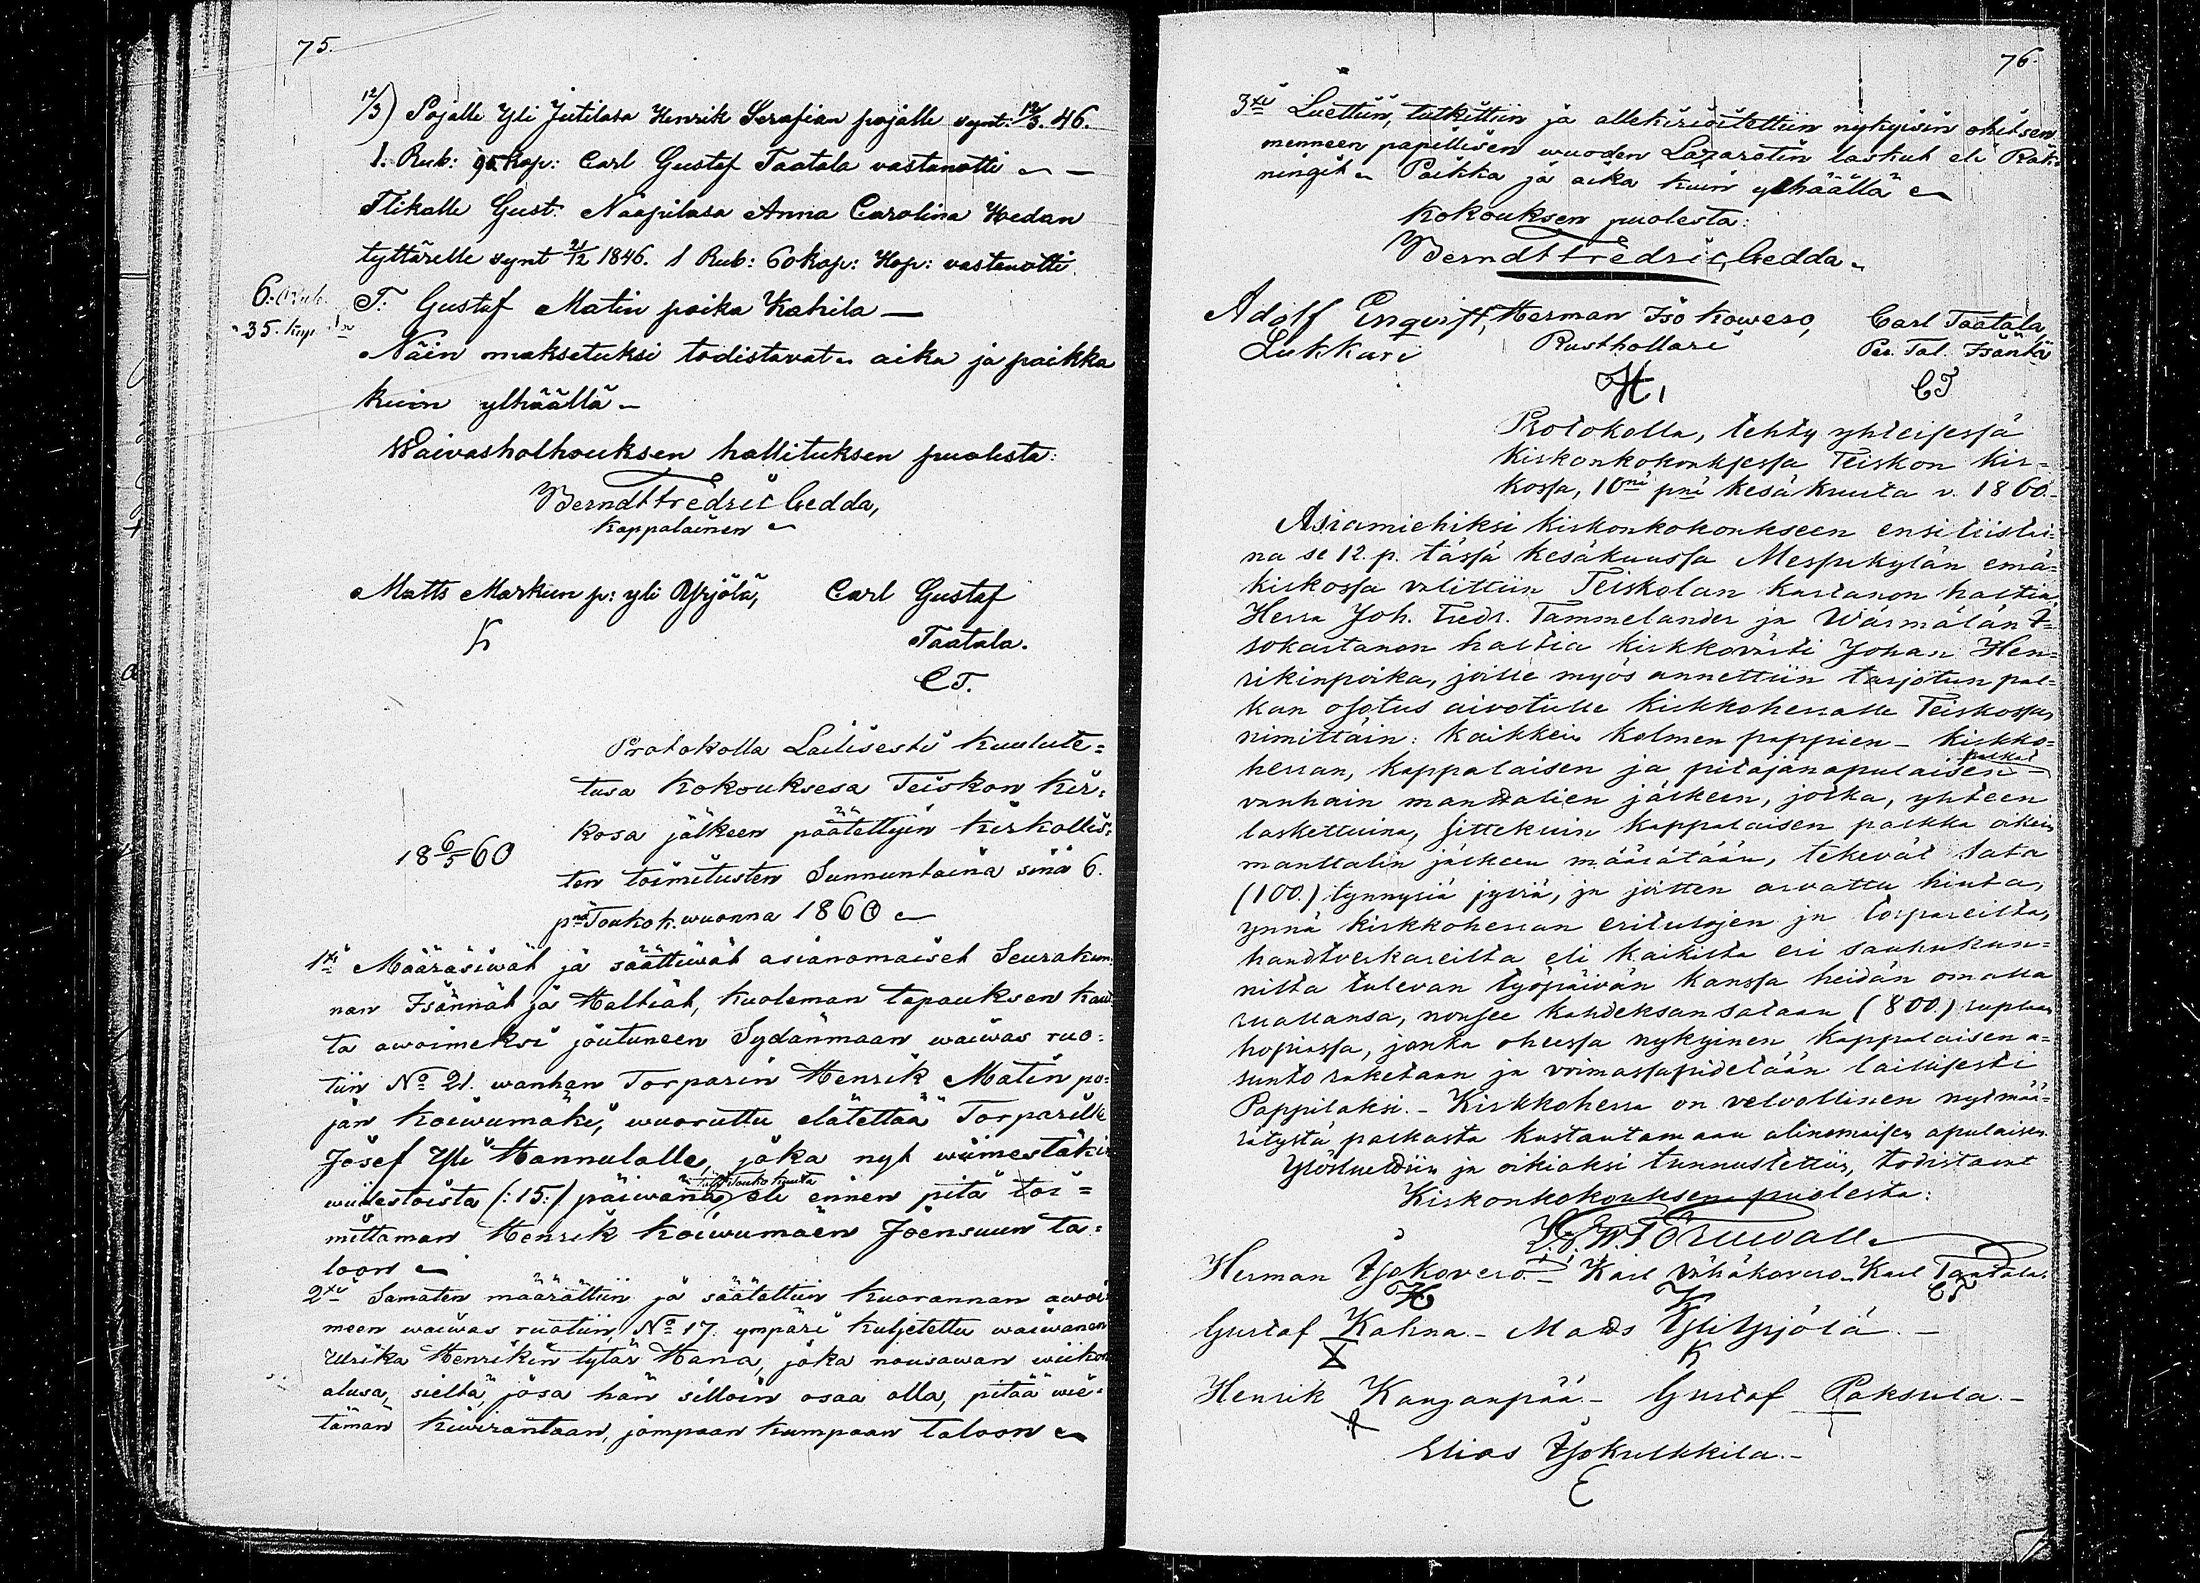 75.
12/3) Pojalle Yli Jutilasa Henrik Serafian pojalle synt: 12/3. 46.
1. Rub: 95 kop: Carl Gustaf Taatala vastanotti
Flikalle Gust. Naapilasa Anna Carolina Hedan
tyttärelle synt 21/12 1846. 1 Rub: 60 kop: Hop: vastanotti
6. Rub.
35. kop
T. Gustaf Matin poika Kahila —
Näin maksetuksi todistavat aika ja paikka
kuin ylhäällä —
Waivasholhouksen hallituksen puolesta:
Berndt Fredric Gedda,
Kappalainen
Matts Markun p: yli Yrjölä, Carl Gustaf
Taatala.
CT.
Protokolla Lailisesti kuulute=
tusa kokouksesa Teiskon kir=
kosa jälkeen päätettyin kirkollis=
18 6/5 60
ten toimitusten Sunnuntaina sinä 6.
pnä Toukok. wuonna 1860
1xi Määräsiwät ja säättiwät asianomaiset Seurakun=
nan Isännät ja Haltiat, kuoleman tapauksen kaut
ta awoimeksi joutuneen Sydänmaan waiwas ruo=
tiin No 21. wanhan Torparin Henrik Matin po=
jan Koiwumäki, wuoruttu elätettää Torparille
Josef Yli Hannulalle, joka nyt wiimestäkin
tätä Toukokuuta
wiidestoista (:15:) päiwänä eli ennen pitä toi=
mittaman Henrik Koiwumäen Joensuun ta=
loon
2xi Samaten määrättiin ja säätettiin Kuorannan awoi
meen waiwas ruotiin, No 17. ympäri kuljetettu waiwanen
Ulrika Henrikin tytär Hana, joka nousawan wiikon
alusa, sieltä, josa hän silloin osaa olla, pitää wie=
tämän Kiwirantaan, jompaan kumpaan taloon
76.
3xi Luettiin, tutkittiin ja allekirioitettiin nykyisin ohitsen
menneen papillisen wuoden Lazarotin laskut eli Räk=
ningit Paikka ja aika kuin ylhäällä
Kokouksen puolesta:
Berndt Fredric Gedda
Adolf Enqvist, Herman Iso Kowero, Carl Taatala
Lukkari Rusthollari Per. Tal. Isäntä
H, CT
Protokolla, tehty yhteisessä
kirkonkokouksessa Teiskon kir=
kossa, 10nä pnä kesäkuuta v. 1860.
Asiamiehiksi kirkonkokoukseen ensi tiistai=
na se 12. p. tässä kesäkuussa Messukylän emä=
kirkossa valittiin Teiskolan kartanon haltia,
Herra Joh. Fredr. Tammelander ja Wärmälän I=
sokartanon haltia kirkkovärti Johan Hen=
rikinpoika, joille myös annettiin tarjotun pal=
kan osotus aivotulle kirkkoherralle Teiskossa,
nimittäin: kaikkein kolmen pappien — kirkko=
palkat
herran, kappalaisen ja pitäjänapulaisen
vanhain manttalien jälkeen, jotka, yhteen
laskettuina, sittekuin kappalaisen palkka oikein
manttalin jälkeen määrätään, tekevät sata
(100.) tynnyriä jyviä, ja joitten arvattu hinta,
ynnä kirkkoherran eritulojen ja torpareilta,
handtverkareilta eli kaikilta eri sauhukun=
nilta tulevan työpäivän kanssa heidän omalla
ruallansa, nousee kahdeksansataan (800.) ruplaan
hopiassa, jonka ohessa nykyinen kappalaisen a=
sunto raketaan ja voimassapidetään laillisesti
Pappilaksi. — Kirkkoherra on velvollinen nytmää=
rätystä palkasta kustantamaan alinomaisen apulaisen.
Ylösluettiin ja oikiaksi tunnustettiin, todistavat
Kirkonkokouksen puolesta:
Herman Isokovero — Karl Vähäkovero — Karl Taatala
H K CT
Gustaf Kahna. — Mads Yli Yrjölä. —
X K
Henrik Kanganpää — Gustaf Paksula. —
Elias Isokulkkila. —
E